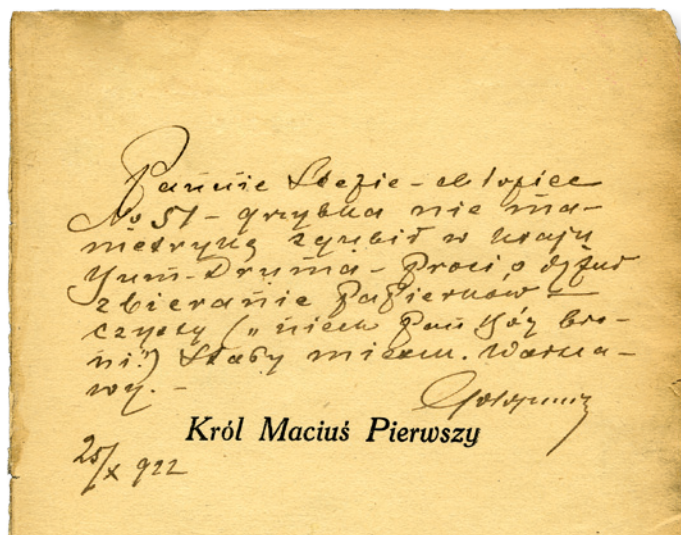 Pannie Stefie – chłopiec
No 51 – grzybka nie ma –
metrykę zgubił w kraju
Yum-Druma – Prosi o dyżur
zbieranie papierków –
czysty („niech Pan Bóg bro-
ni”) Stały mieszk. Warsza-
wy. –
Król Maciuś Pierwszy
25/X 922